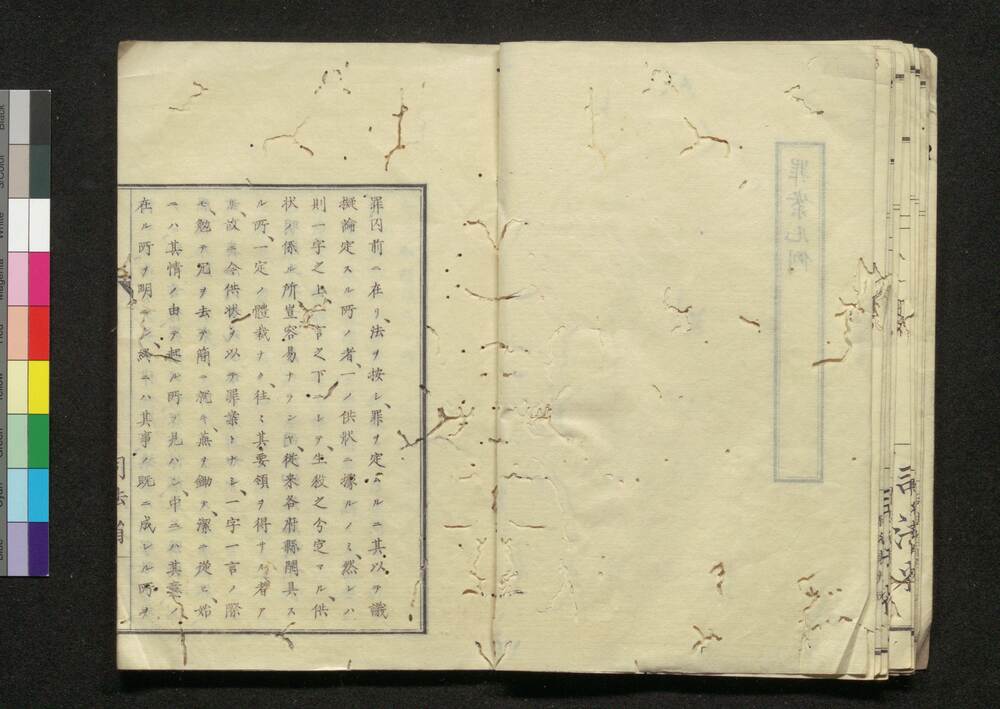 罪案凡例
罪囚前ニ在リ法ヲ按シ罪ヲ定ムルニ其以テ議
擬論定スル所ノ者一ノ供状ニ據ルノミ然レハ
則一字之上一言之下ヘシテ生殺之分定マル供
状ノ係ル所豈容易ナランヤ従来各府縣開具ス
ル所一定ノ體裁ナク往々其要領ヲ得サル者ア
リ故ニ今供状ヲ以テ罪案トナシ一字一言ノ際
モ勉テ冗ヲ去テ簡ニ就キ蕪ヲ鋤テ潔ニ從ヒ始
ニハ其情ノ由テ起ル所ヲ見ハシ中ニハ其案ノ
在ル所ヲ明ニシ終ニハ其事ノ既ニ成レル所ヲ
司法省